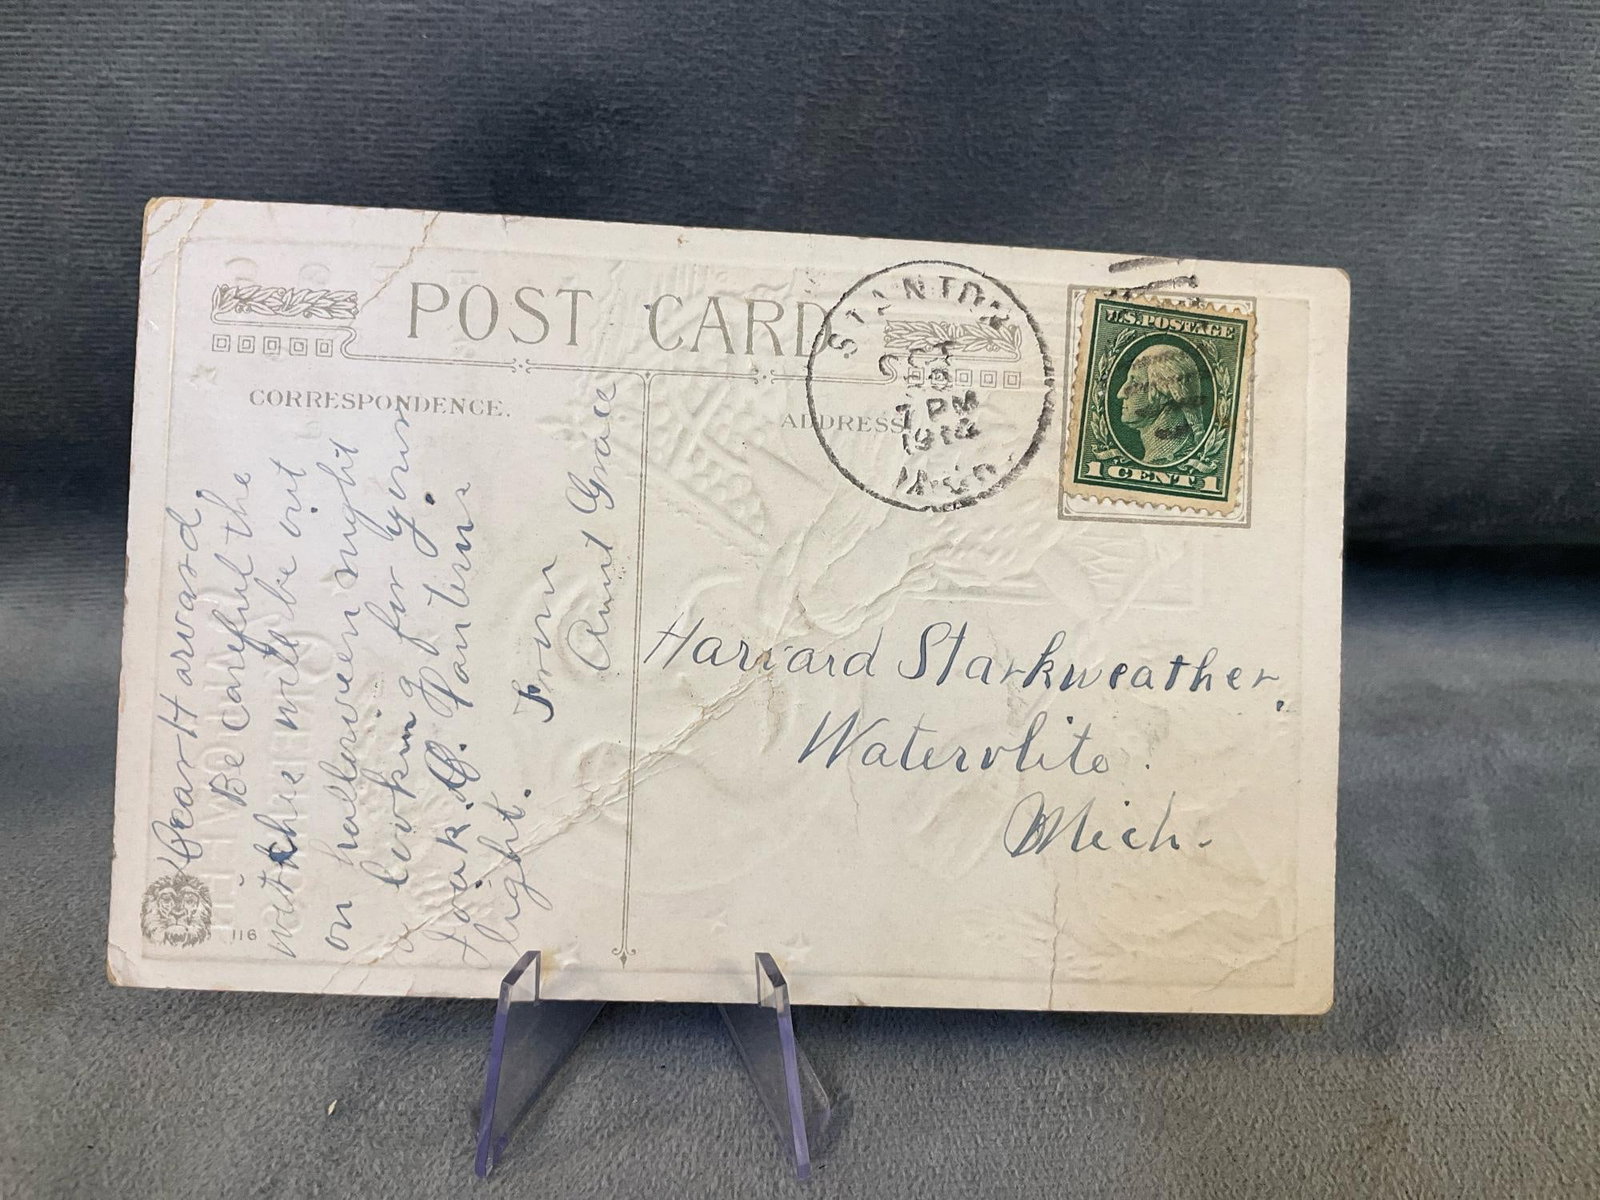 POST CARD
CORRESPONDENCE.
ADDRESS
STANTON
OCT
7 PM
1914
U.S. POSTAGE
1 CENT 1
Dear Harvard,
Be careful the
witches will be out
on halloween night
a looking for your
Jack. O. Lantern
light.
From
Aunt Grace
Harvard Starkweather,
Watervlite.
Mich.
116